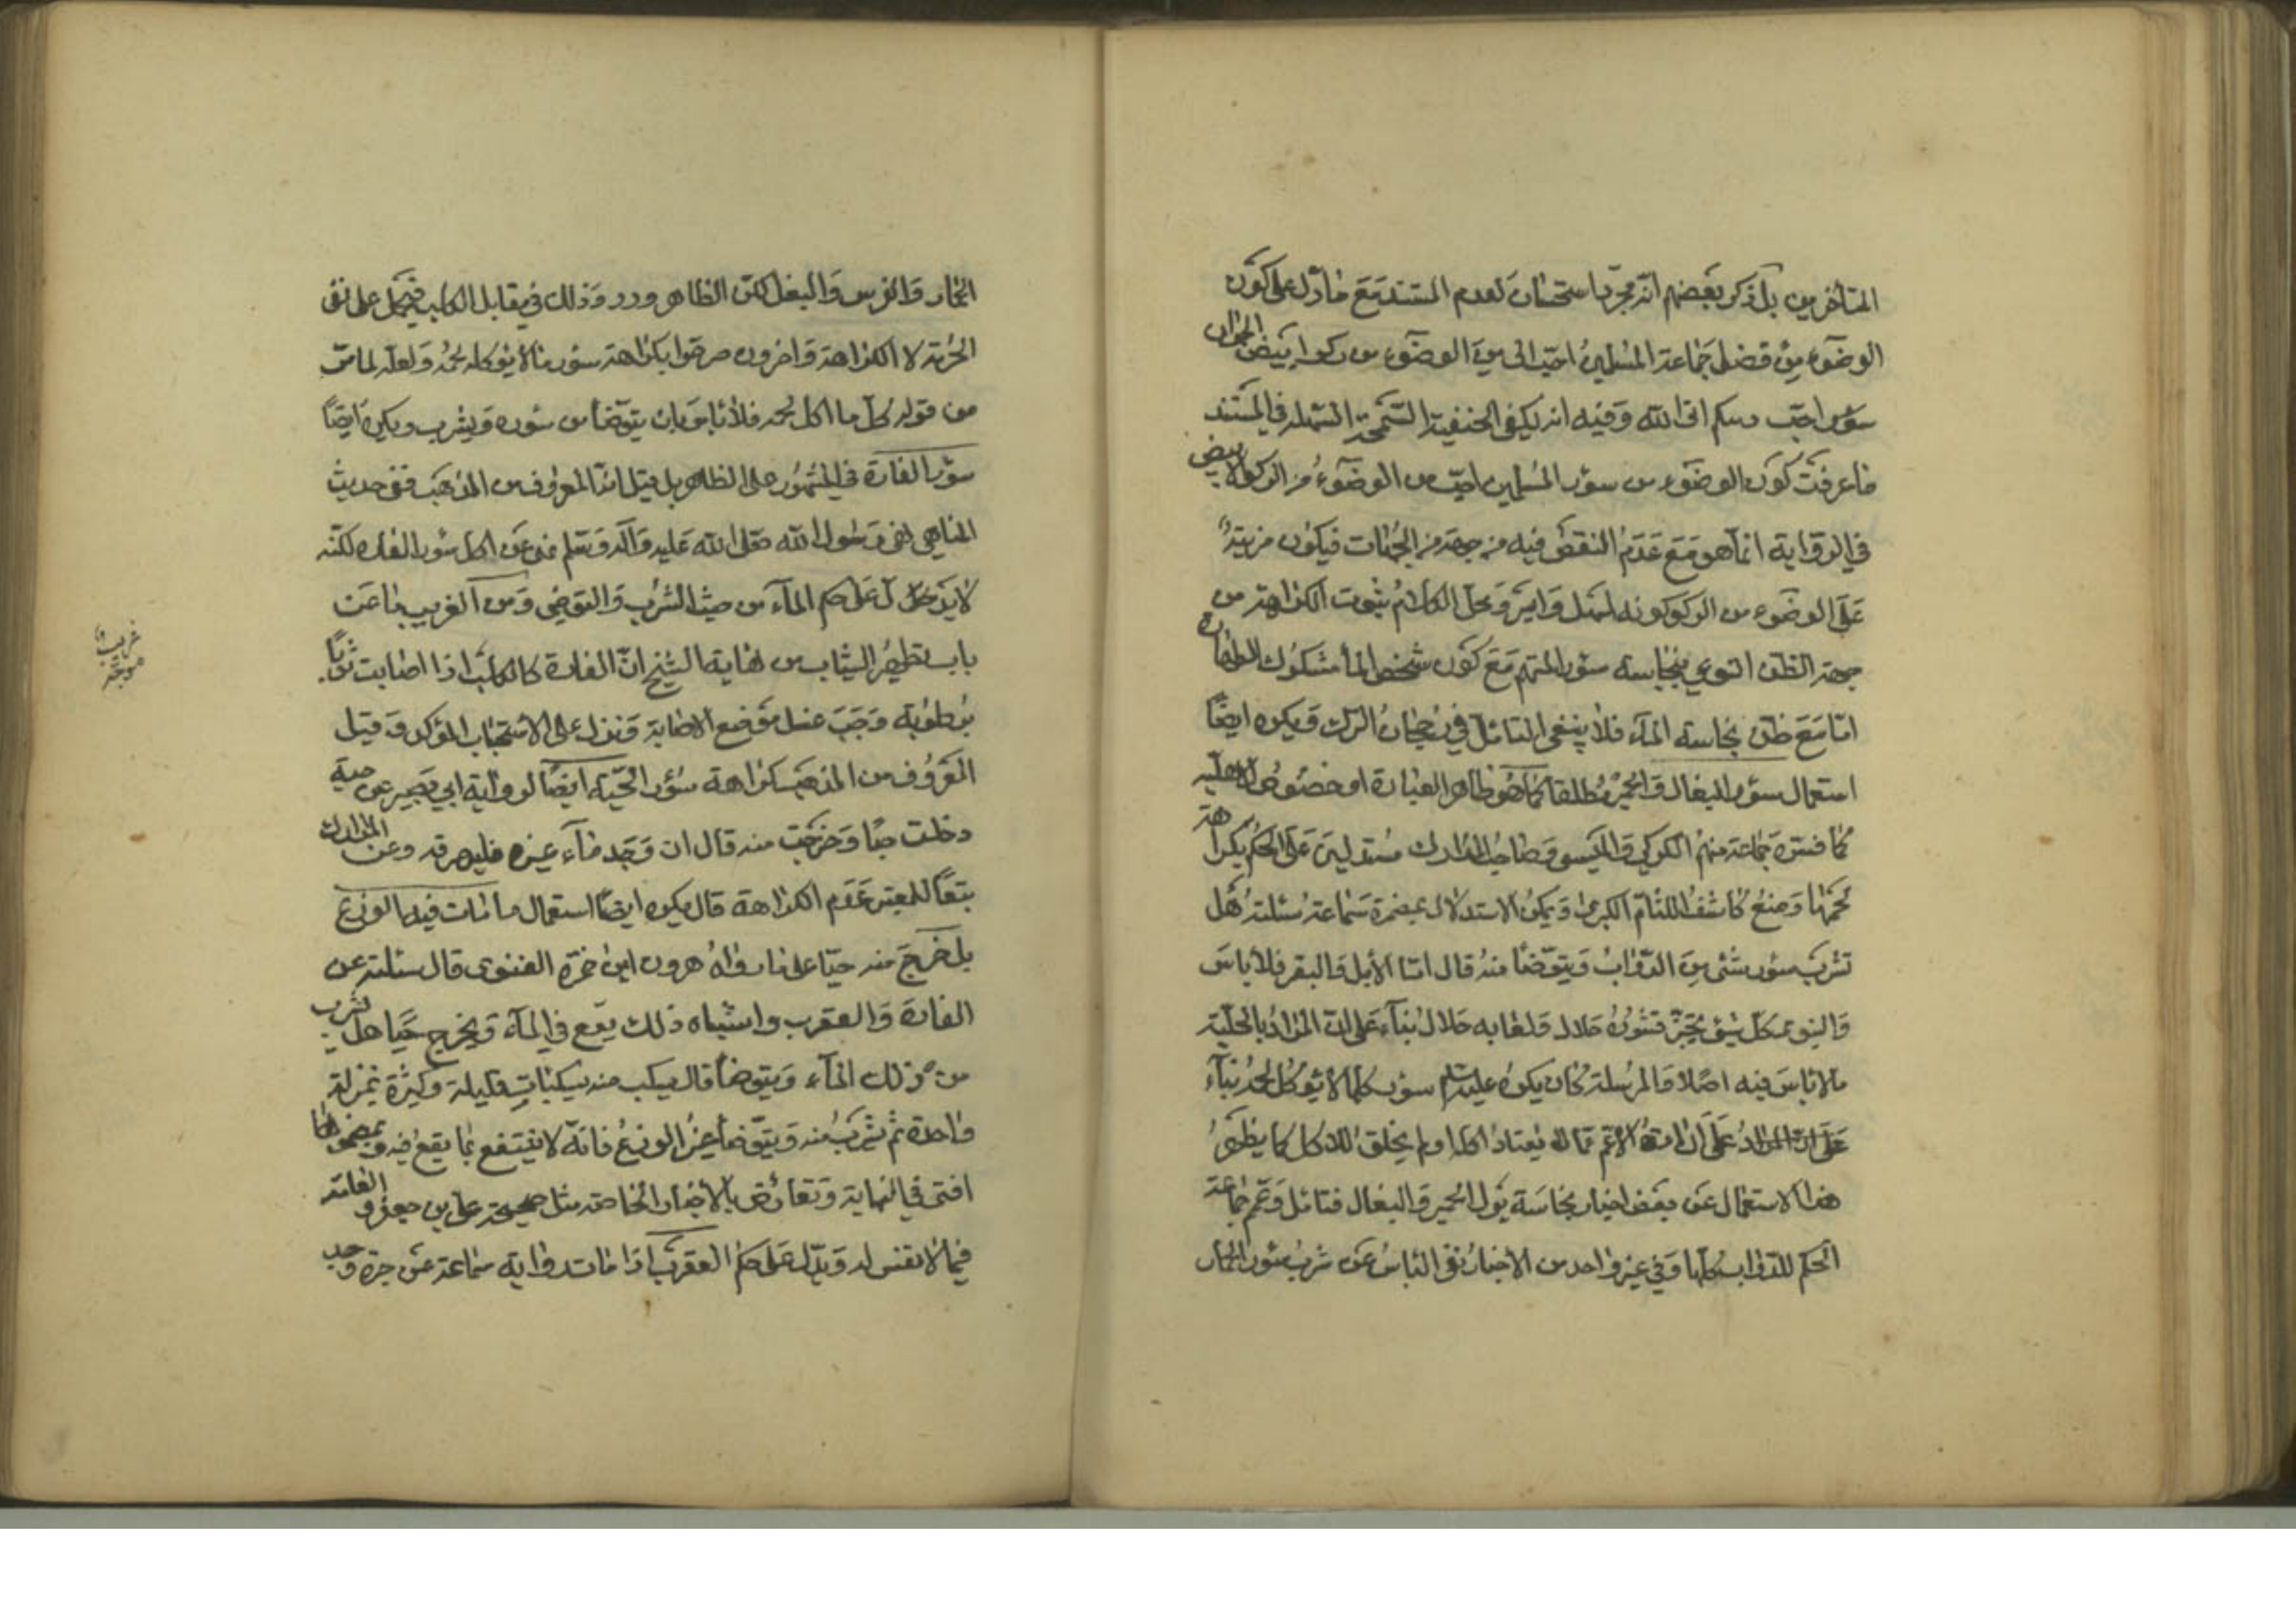 المتأخرين بل ذكر بعضهم انه مجرد استحسان لعدم المستند مع ما دل على كون
الوضوء من فضل جماعة المسلمين احب الى من الوضوء من ركو ابيض
سؤر احب دينكم الى الله وفيه انه يكفى الحنفية السمحة السهلة في المستند
ما عرفت كون الوضوء من سؤر المسلمين احب من الوضوء من الركو الابيض
في الرواية انما هو مع عدم النقض فيه من جهة من الجهات فيكون مزيته
على الوضوء من الركو كونه اسهل وايسر ومحل الكلام ثبوت الكراهة من
جهة الظن النوعي بنجاسة سؤر المتهم مع كون شخص الماء مشكوك الطهارة
اما مع ظن نجاسة الماء فلا ينبغي التامل في رجحان الترك ويكره ايضا
استعمال سؤر البغال والحمير مطلقا كما هو ظاهر العبارة او خصوص الاهلية
كما فسره جماعة منهم الكركي والميسي وصاحب المدارك مستدلين على الحكم بكراهة
لحمها ومنع كاشف اللثام الكبرى ويمكن الاستدلال بمضمرة سماعة سئلته هل
تشرب سؤر شئ من الدواب ويتوضأ منه قال اما الابل والبقر فلا باس
والنبوي كل شئ يجتر فسؤره حلال ولعابه حلال بناء على ان المراد بالحلية
ما لا باس فيه اصلا والمرسلة كان يكره عليه السلم سؤر كلما لا يؤكل لحمه بناء
على ان المراد الاعم مما لا يعتاد اكله او لم يخلق للاكل كما يظهر
هذا الاستعمال عن بعض اخبار نجاسة بول الحمير والبغال فتامل وعم جماعة
الحكم للدواب كلها وفي غير واحد من الاخبار نفى الباس عن شرب سؤر الحمار
الحمار والفرس والبغل لكن الظاهر ورود ذلك في مقابل الكلب فيحمل على نفى
الحرمة لا الكراهة واخرون صرحوا بكراهة سؤر ما لا يؤكل لحمه ولعله لما مر
من قوله كل ما اكل لحمه فلا باس بان يتوضأ من سؤره ويشرب ويكره ايضا
سؤر الفارة في المشهور على الظاهر بل قيل انه المعروف من المذهب ففى حديث
المناهي انه رسول الله صلى الله عليه وآله وسلم نهى عن اكل سؤر الفار لكنه
لا يدل على حكم الماء من حيث الشرب والتوضي ومن الغريب ما عن
باب تطهير الثياب من نهاية الشيخ ان الفارة كالكلب اذا اصابت ثوبا
برطوبة وجب غسل موضع الاصابة ونزل على الاستحباب المؤكد وقيل
المعروف من المذهب كراهة سؤر الحية ايضا لرواية ابي بصير عن حية
دخلت حبا وخرجت منه قال ان وجد ماء غيره فليهرقه وعن المدارك
تبعا للمعتبر عدم الكراهة قال يكره ايضا استعمال ما مات فيه الوزغ
بل خرج منه حيا على ما رواه هرون ابن حمزة الغنوى قال سئلته عن
الفارة والعقرب واشباه ذلك يقع في الماء ويخرج حيا هل يشرب
من ذلك الماء ويتوضأ قال يسكب منه ... قليلة وكثيره بمنزلة
واحدة ثم يشرب منه ويتوضأ غير الوزغ فانه لا ينتفع بما يقع فيه وبمضمونها
افتى في النهاية وتعارض بالاخبار الخاصة مثل صحيحة على بن جعفر والعامة
فيما لا نفس له ويدل على حكم العقرب اذا ماتت رواية سماعة عن جرة وجد
غريب